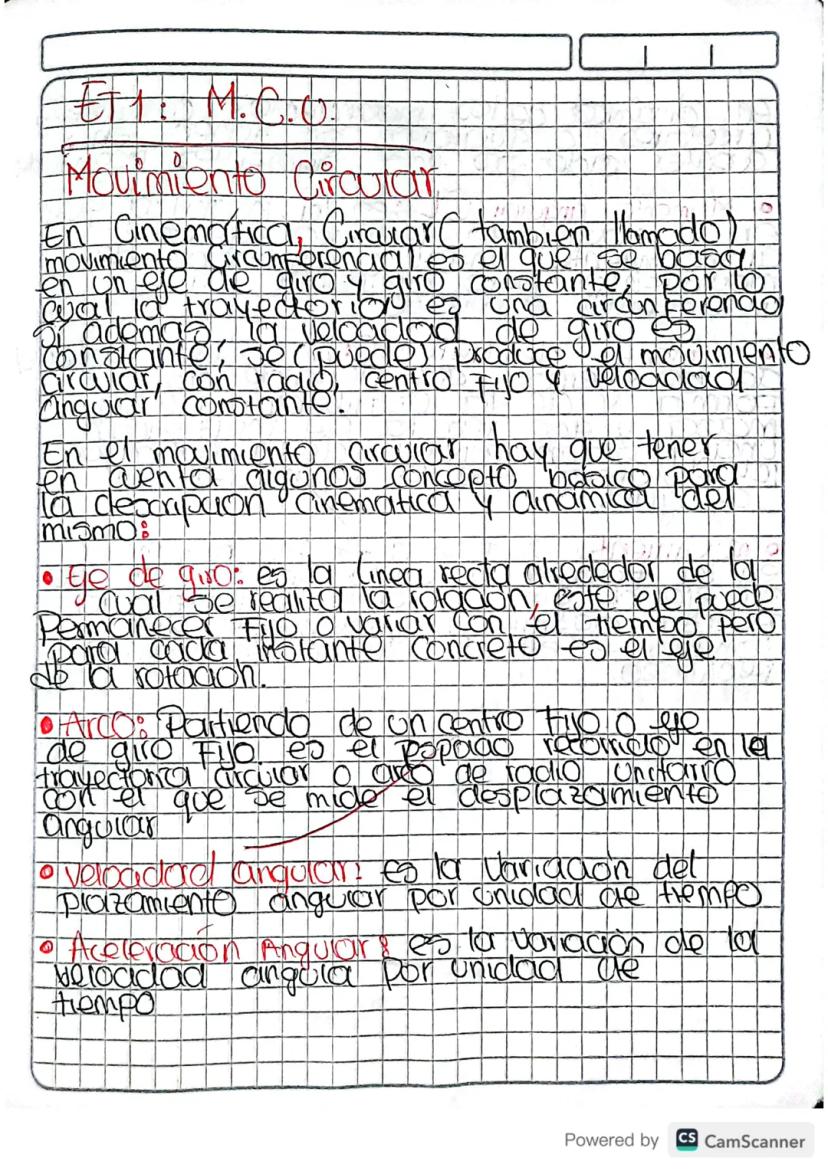 ET1: M.C.U.
Movimiento Circular
En Cinemática, Circular( tambien llamado)
movimiento circumferencial es el que se basa
en un eje de giro y giro constante, por lo
cual la trayectoria es una circunferencia
Si ademas, la velocidad de giro es
constante, se (puede) produce el movimiento
circular, con radio, centro Fijo y velocidad
angular constante.
En el movimiento circular hay que tener
en cuenta algunos concepto basico para
la descripcion cinematica y dinámica del
mismo:
• Eje de giro: es la linea recta alrededor de la
cual se realiza la rotacion, este eje puede
Permanecer Fijo o variar con el tiempo pero
para cada instante concreto es el eje
de la rotacion.
• Arco: Partiendo de un centro fijo o eje
de giro Fijo. es el espacio recorrido en la
trayectoria circular o arco de radio unitario
con el que se mide el desplazamiento
angular
• velocidad angular: es la variación del
plazamiento angular por unidad de tiempo
• Aceleración Angular: es la variación de la
velocidad angula por unidad de
tiempo
Powered by CS CamScanner